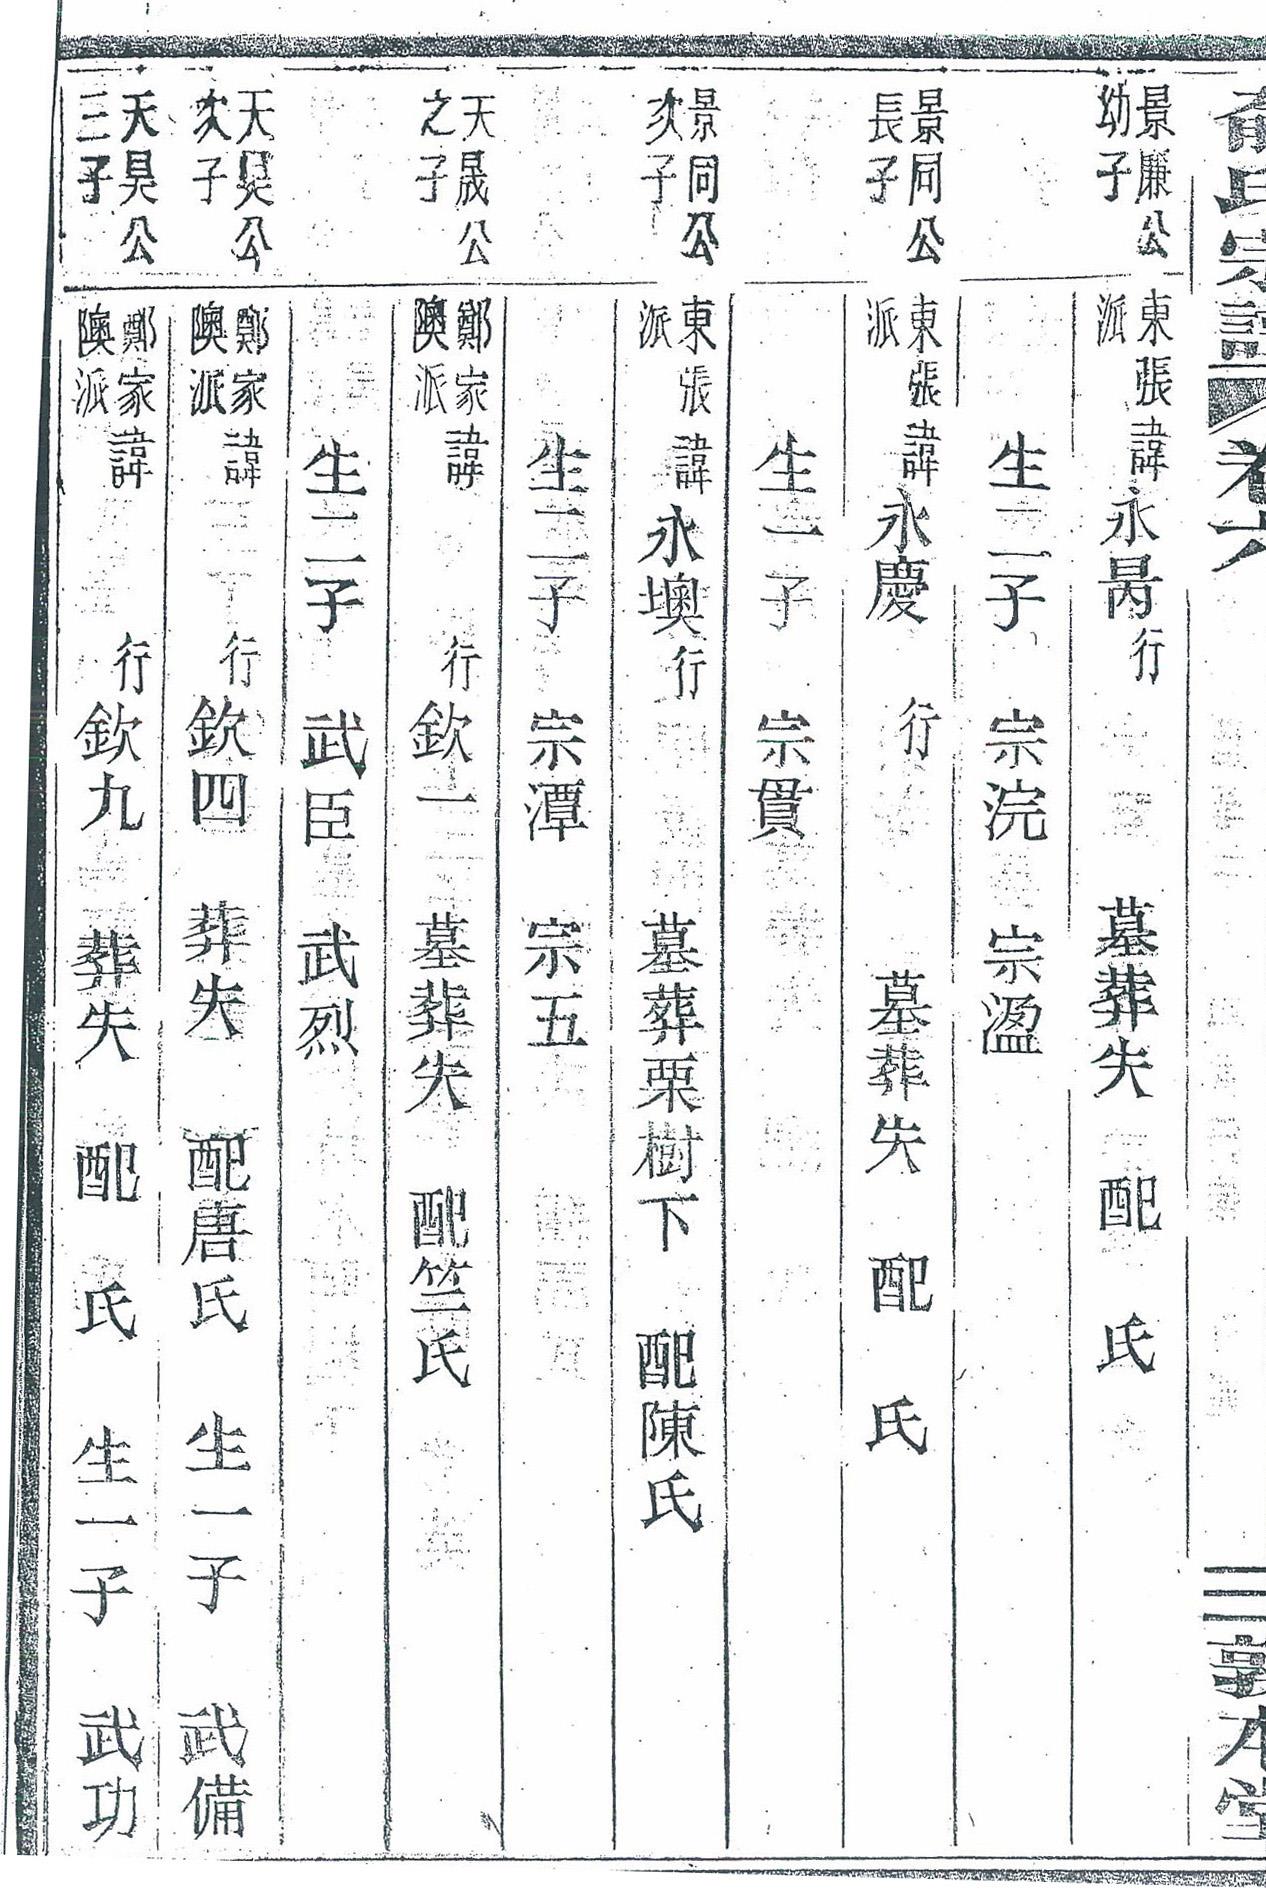 俞氏宗譜 卷六 三 敦本堂
景廉公幼子 東張派 諱永昺 行 墓葬失 配 氏
生二子 宗浣 宗溋
景同公長子 東張派 諱永慶 行 墓葬失 配 氏
生一子 宗貫
景同公次子 東張派 諱永墺 行 墓葬栗樹下 配陳氏
生二子 宗潭 宗五
天晟公之子 鄭家隩派 諱 行欽一 墓葬失 配竺氏
生二子 武臣 武烈
天昊公次子 鄭家隩派 諱 行欽四 葬失 配唐氏 生一子 武備
天昊公三子 鄭家隩派 諱 行欽九 葬失 配 氏 生一子 武功